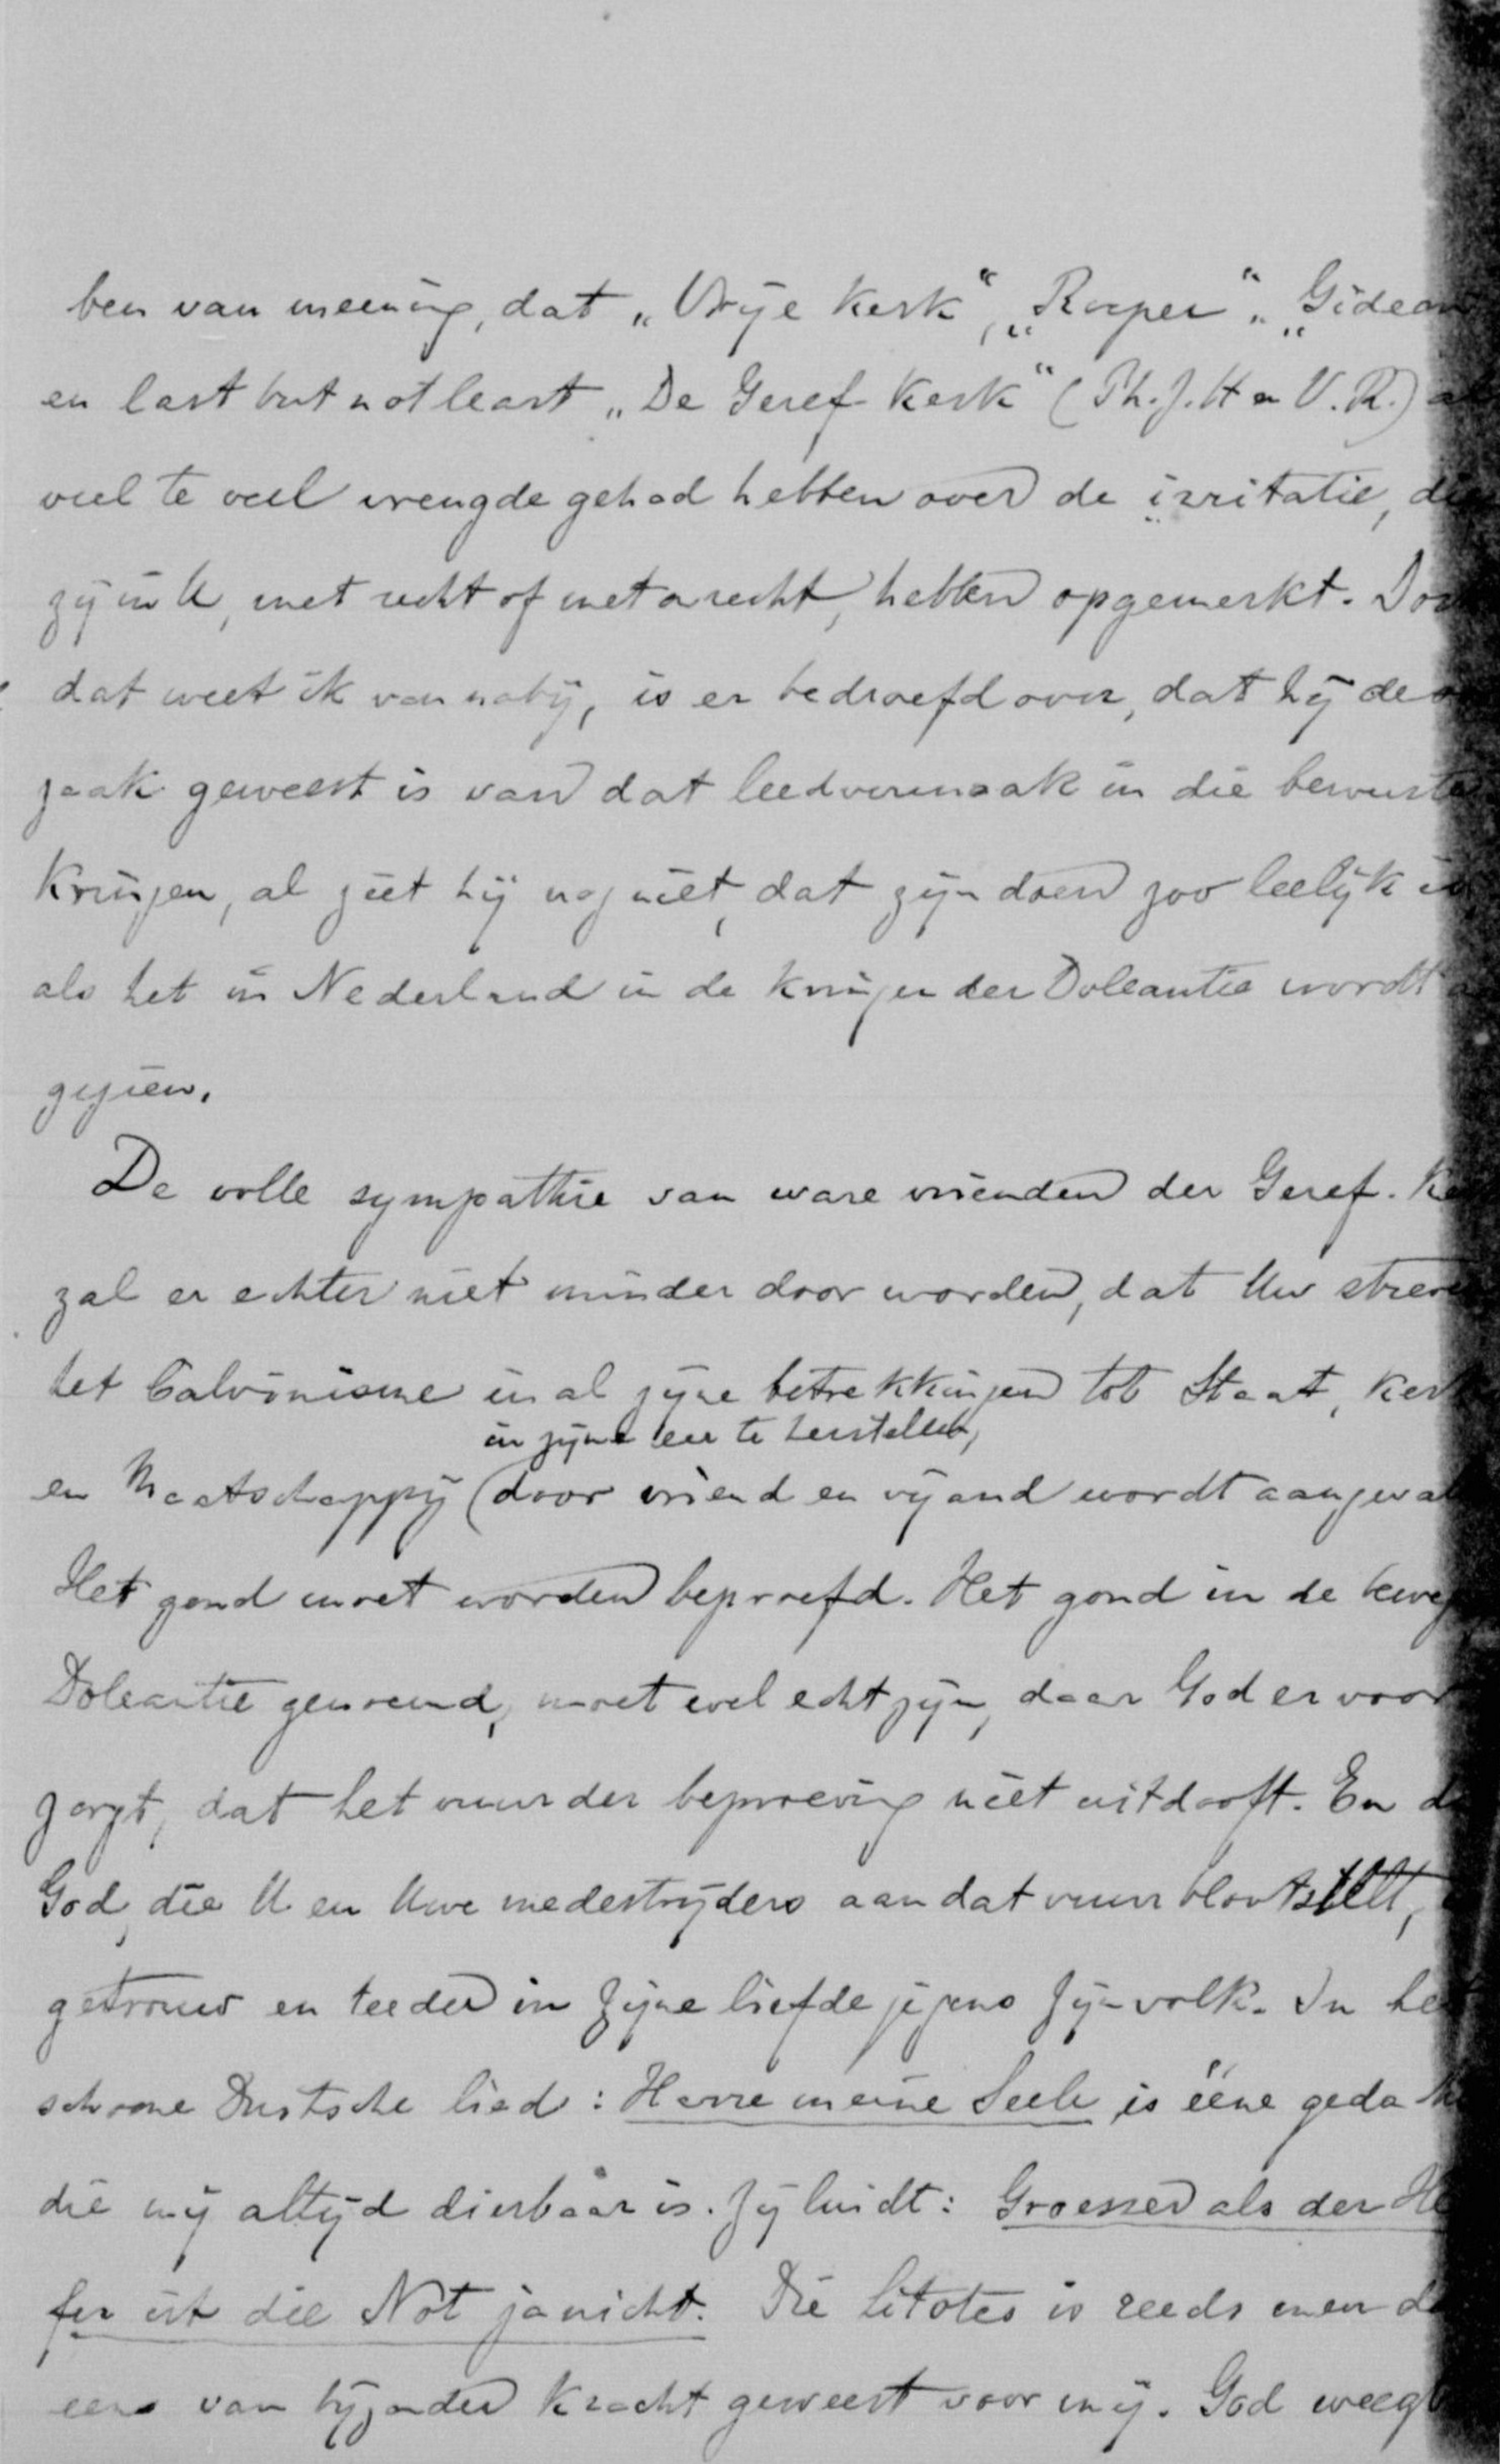 ben van meening, dat „Vrije Kerk“, „Roeper“ „Gideon
en last but not least „De Geref. Kerk“ (Ph. J. H en V. R.)
veel te veel vreugde gehad hebben over de irritatie, die
zij in U, met recht of met onrecht, hebben opgemerkt.
dat weet ik van nabij, is er bedroefd over, dat hij de
zaak geweest is van dat leedvermaak in die bewuste
Kringen, al ziet hij nog niet, dat zijn doen zoo leelijk is
als het in Nederland in de kringen der Doleantie wordt
gezien.
De volle sympathie van ware vrienden der Geref. Ke
zal er echter niet minder door worden, dat Uw streve
het Calvinisme in al zijne betrekkingen tot Staat, Kerk
in zijne eer te herstellen,
en Maatschappij (door vriend en vijand wordt aangeval
Het goud moet worden beproefd. Het goud in de beweg
Doleantie genoemd, moet wel echt zijn, daar God er voor
zorgt, dat het vuur der beproeving niet uitdooft. En d
God, die U en Uwe medestrijders aan dat vuur blootstelt,
getrouw en teeder in Zijne liefde jegens Zijn volk. In het
schoone Duitsche lied: Harre meine Seele is ééne gedach
die mij altijd dierbaar is. Zij luidt: Groesser als der He
fer ist die Not ja nicht. Die litotes is reeds meer da
eens van bijzonder kracht geweest voor mij. God weegt